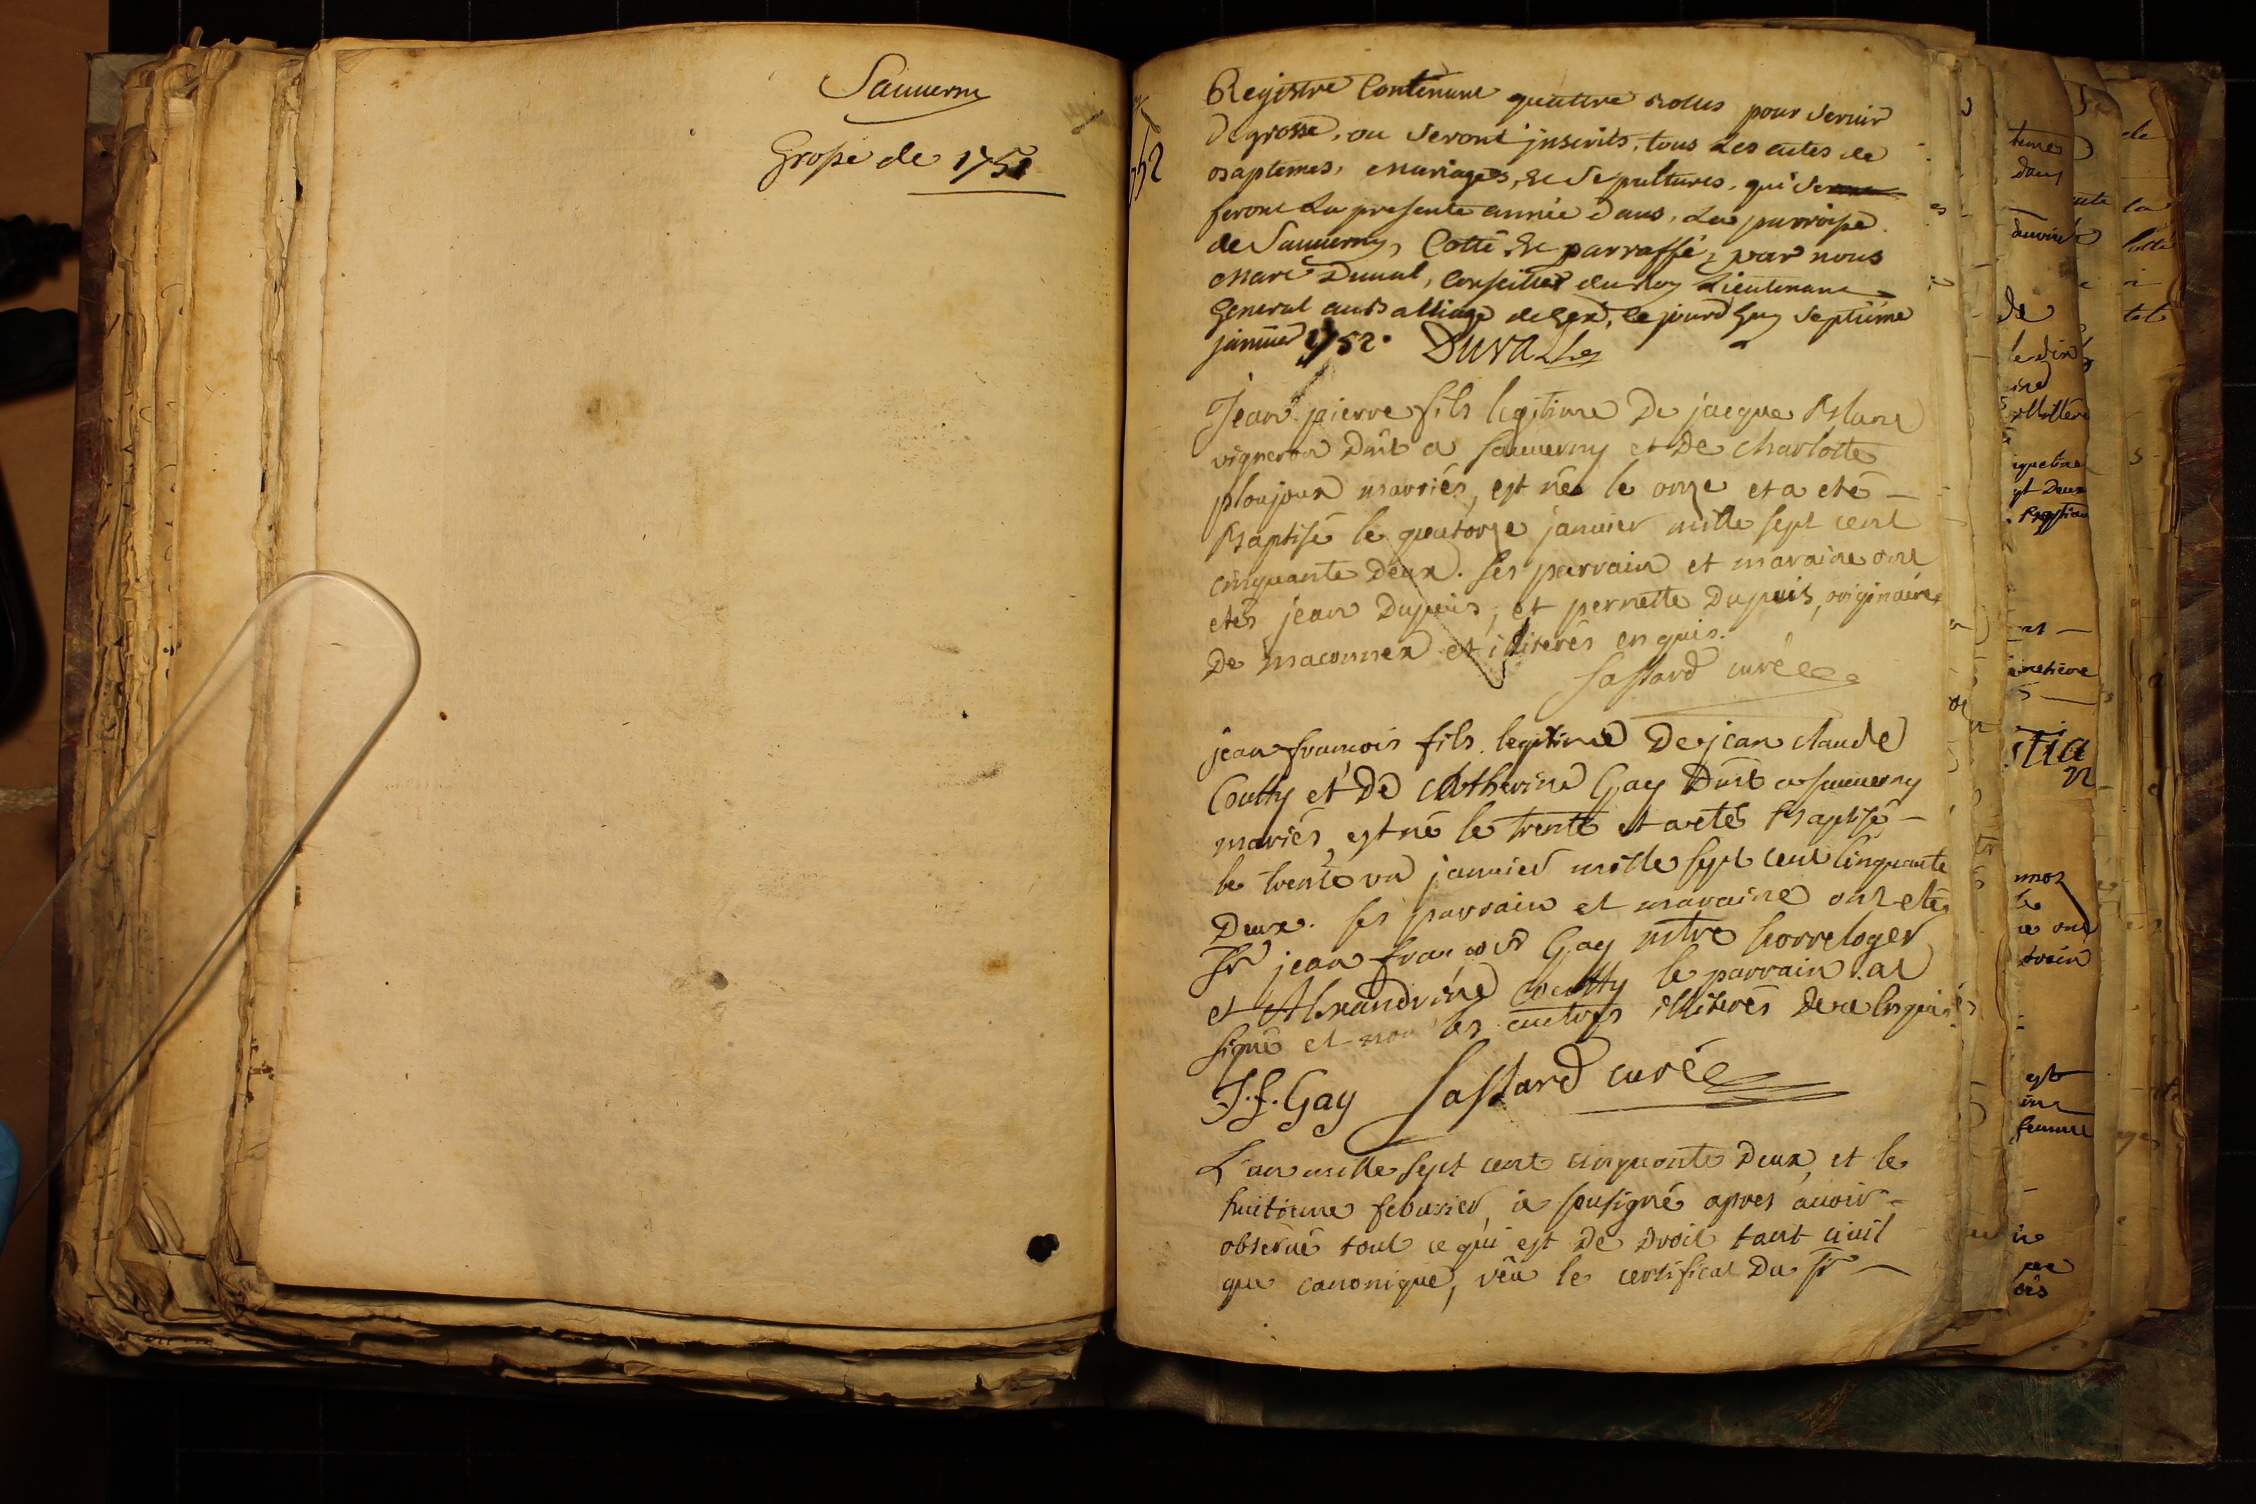 Sauuerny
Grosse de 1751
1752
Registre Contenant quattre rolles pour seruir
de grosse, ou seront jnscrits, tous Les actes de
Baptemes, Mariages, et Sepultures, qui se
feront La presente année dans La parroisse
de Sauuerny, Cotté et parraffé, par nous
Marc Duual, Conseiller du Roy Lieutenant
General au Balliage de Gex, Cejourd'huy septiéme
januier 1752. Duval
Jean pierre fils legitime De jacque Blanc
vigneron Dud.t a Sauuerny et De Charlotte
ploujoux mariés, est né le onze et a eté –
Baptisé le quatorze januier mille sept cent
cinquante Deux. Ses parrain et maraine ont
etés jean Dupuis, et pernette Dupuis, originaires
De maconnex et illiterés enquis.
Sastard curé
jean francois fils legitime De jean claude
Coutty et De Catherine Gay a Sauuerny
mariés, est né le trente et a eté Baptisé –
le trente un januier mille sept cent Cinquante
Deux. Ses parrain et maraine ont etés
Sr jean francois Gay horreloger
et Alexandrine Coutty le parrain a
signé et non les autres illiterés De ce Enquis
J. f. Gay Sastard curé
L'an mille sept cent cinquante Deux, et le
huitieme feburier, je sousigné apres auoir –
obserué tout ce qui est De Droit tant ciuil
que canonique, vëu le certificat Du Sr —